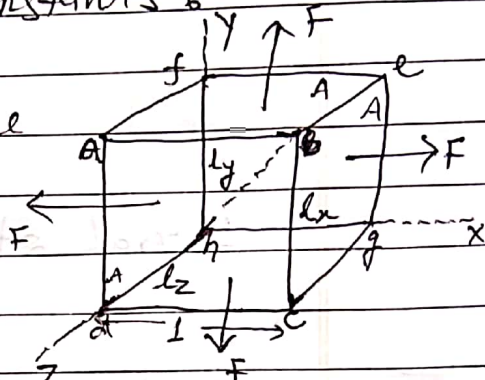 Y F
f e
A A
l
a B
ly F
lx
F h g x
A lz
d 1 C
F
Z